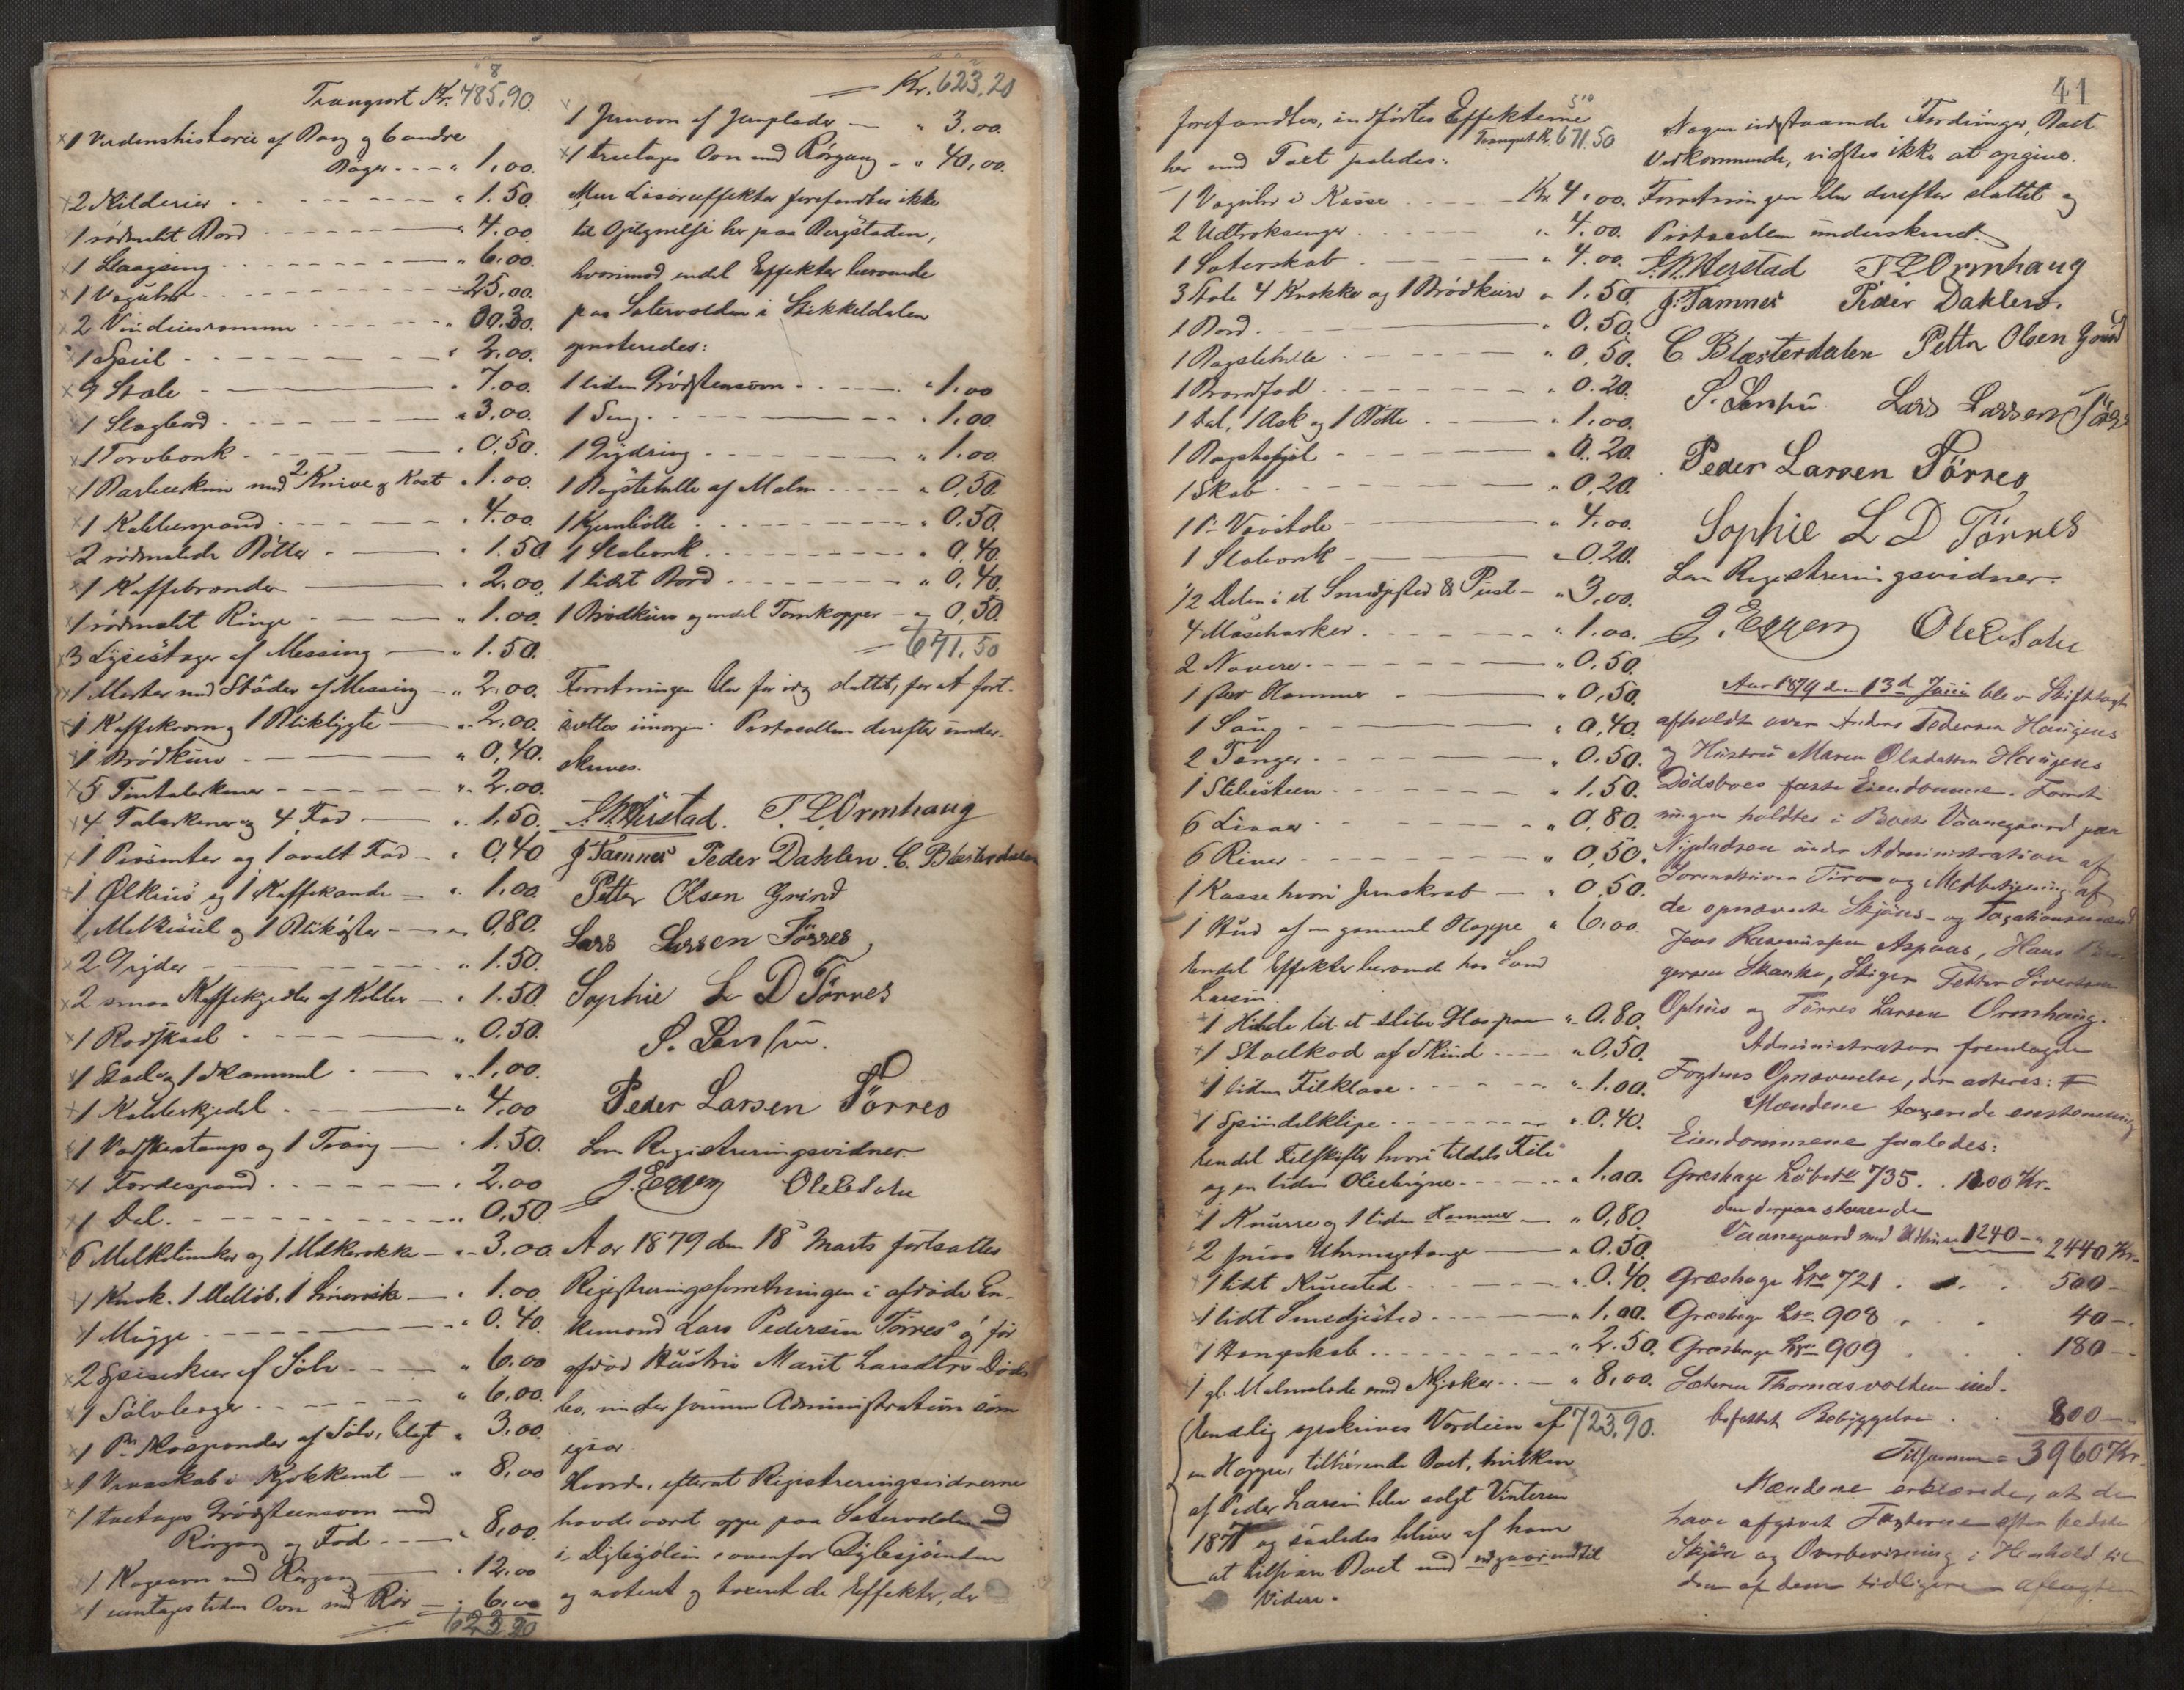 Transport Kr. 485.90.
1 Verdenshistorie af Bang og 6 andre
Bøger - - - „ 1,00.
2 Kilderier - - - „ 1.50.
1 rødmalt Bord - - - „ 4.00.
1 Slaagseng - - - „ 6.00.
1 Væguhr - - - 25,00.
2 Vinduesrammer - - - „ 00.30.
1 Speil - - - „ 2,00.
9 Stole - - - „ 7.00.
1 Slagbord - - - „ 3,00.
1 Torvbænk - - - „ 0,50.
1 Barberskrin med 2 Knive og Kost „ 1.00.
1 Kobberspand - - - „ 4.00.
2 rødmalede Bøtter - - - „ 1.50
1 Kaffebrænder - - - „ 2.00.
1 rødmalt Ringe - - - „ 1.00.
3 Lysestager af Messing - - - „ 1.50.
1 Morter med Støder af Messing - „ 2.00.
1 Kaffekværn og 1 Bliklygte - „ 2.00.
1 Brødkurv - - - „ 0,40.
5 Tintalerkener - - - „ 2.00.
4 Talerkener og 4 Fad - - - „ 1.50.
1 Bismer og 1 ovalt Fad - „ 0,40
1 Ølkrus og 1 Kaffekande - „ 1.00.
1 Melkesiil og 1 Blikøster - - „ 0,80.
2 Gryder - - - „ 1.50.
2 smaa Kaffekjedler af Kobber - „ 1.50.
1 Kobberkjedel - - - „ 4,00
1 Vadskestamp og 1 Traug - „ 1.50.
1 Fordespand - - - „ 2.00
1 Dal - - - „ 0,50.
6 Melkebunker og 1 Melkerække - „ 3.00.
1 Mugge - - - „ 0.40.
2 Spiseskeer af Sølv - - „ 6.00
1 Sølvbæger - - - „ 6.00.
1 Vraaskab i Kjøkkenet - „ 8,00
1 toetages Grødsteensovn med
Rørgang og Fod - - - „ 8,00.
1 Kogeovn med Rørgang - „ 12.00
1 eenetages liden Ovn med Rør - „ 6,00
623.20
Kr. 623,20
1 Jernovn af Jernplade - „ 3,00.
1 treetages Ovn med Rørgang - „ 40,00.
Mere Løsøreeffekter forefandtes ikke
til Optegnelse her paa Bergstaden,
hvorimod endel Effekter beroende
paa Sætervolden i Stikkeldalen
opnoteredes:
1 liden Grødsteensovn - - - „ 1.00
1 Seng - - - „ 1,00.
1 Gryde - - - „ 1.00
1 Bøgstehelle af Malm - - - „ 0,50.
1 Kjernbøtte - - - „ 0,50.
1 Slabænk - - - „ 0,40.
1 lidet Bord - - - „ 0,40.
1 Brødkurv og endel Trækopper - „ 0,50.
671.50
Forretningen blev for idag sluttet, for at fort-
sættes imorgen. Protocollen derefter under-
skreves.
Herstad. T L Ormhaug
J: Tamnes Peder Dahlen. C. Blæsterdalen
Petter Olsen Grind
Lars Larsen Tørres
Sophie L D Tørres
S. Larssen.
Peder Larsen Tørres
Som Registreringsvidner.
J. Eggen Ole
Aar 1879 den 18 Marts fortsattes
Registreringsforretningen i afdøde En-
kemand Lars Pedersen Tørres og før
afdød Hustru Marit Larsdtrs Døds-
bo, under samme Administration som
igaar.
Hvorda, efterat Registreringsvidnerne
havde været oppe paa Sætervolden
i ovenfor
og noteret og taxeret de Effekter, der
41
forefandtes, indførtes Effekterne
Transport Kr. 671.50
her med Taxt saaledes:
1 Væguhr i Kasse - - - Kr. 4.00.
2 Udtræksenger - - - „ 4.00.
1 Saterskab - - - „ 4.00.
3 Stole 4 Krakke og 1 Brødkurv „ 1.50.
1 Bord - - - „ 0.50.
1 Bagstehelle - - - „ 0,50.
1 Brændfad - - - „ 0.20.
1 Dal, 1 Ask og 1 Bøtte - - „ 1.00.
1 Bagstefjøl - - - „ 0.20.
1 Skab - - - „ 0,20.
1 Pr Vævstole - - - „ 4.00.
1 Slabænk - - - „ 0.20.
1/2 Delen i et Smedjested & Pust - „ 3,00.
4 Maseharker - - - „ 1.00.
2 Navere - - - „ 0.50.
1 stor Hammer - - - „ 0,50.
1 Saug - - - „ 0,40.
2 Tænger - - - „ 0.50.
1 Slibesteen - - - „ 1.50.
6 Liaaer - - - „ 0,80.
6 River - - - „ 0,50.
1 Kasse hvori Jernskrab - „ 0,50.
1 Hud af en gammel Hoppe „ 6,00.
Endel Effekter beroende hos Svend
Larsen.
1 Hilde til et sliber Glas paa „ 0.80.
1 af Skind - - - „ 0,50.
1 liden Filklave - - - „ 1.00.
1 Spindelklipe - - - „ 0.40.
Endel Filskafter hvori tildels File
og en liden - - - „ 1,00.
1 Knurre og 1 liden Hammer - „ 0,80.
2 smaa Uhrmagetange - „ 0.50.
1 lidet - - - „ 0.40.
1 lidet Smedjested - - - „ 1,00.
1 Hængskab - - - „ 2.50.
1 gl. Malmslæde med Kjelker - „ 8,00.
723,90.
Endelig opskrives Værdien af
en Hoppe, tilhørende Boet, hvilken
af Peder Larsen blev solgt Vinteren
187 og saaledes bliver af ham
at tilsvare Boet med
Videre.
Nogen udestaaende Fordringer, Boet
vedkommende, vidstes ikke at opgives.
Forretningen blev derefter sluttet og
Protocollen underskrevet.
Herstad T L Ormhaug
J: Tamnes Peder Dahlen.
C Blæsterdalen Petter Olsen Grind
S. Larssen Lars Larsen Tørres
Peder Larsen Tørres
Sophie L D Tørres
Som Registreringsvidner.
J. Eggen Ole
Aar 1879 den 13d Juni blev Skiftetaxt
afholdt over Anders Pedersen Haugens
og Hustru Maren Olsdatter Haugens
Dødsboes faste Eiendomme. Forret-
ningen holdtes i Boets Vaanegaard paa
Nypladsen under Administration af
Sorenskriver og Medbetjening af
de opnævnte Skjøns- og Taxationsmænd
Jens Rasmussen Aspaas, Hans
Skanke, Stiger Petter Sivertsen
Ophus og Tørres Larsen Ormhaug.
Administrator fremlagde
Fogdens Opnævnelse, der acteres:
Mændene taxerede enstemmig
Eiendommene saaledes:
Græshage Løbe No 735. . 1200 Kr.
den derpaa staaende
Vaanegaard med Udhuse 1240 - „ 2440 Kr.
Græshage Lno 721 . . . 500 -
Græshage Lno 908 . . 40 -
Græshage Lno 909 . . . 180 -
Sæteren Thomasvolden med
befattet Bebyggelse . . 800 -
Tilsammen = 3960 Kr.
Mændene erklærede, at de
have afgivet Taxterne efter bedste
Skjøn og Overbevisning i Henhold til
den af dem tidligere aflagte